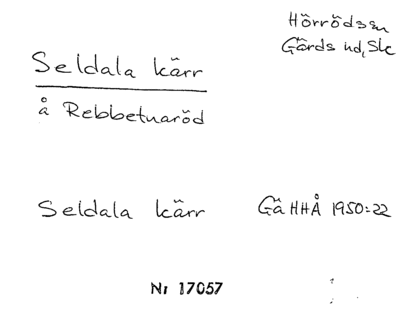 Hörröds sn
Gärds hd, Sk
Seldala kärr
å Rebbetuaröd
Seldala kärr GäHHÅ 1950:22
Nr 17057